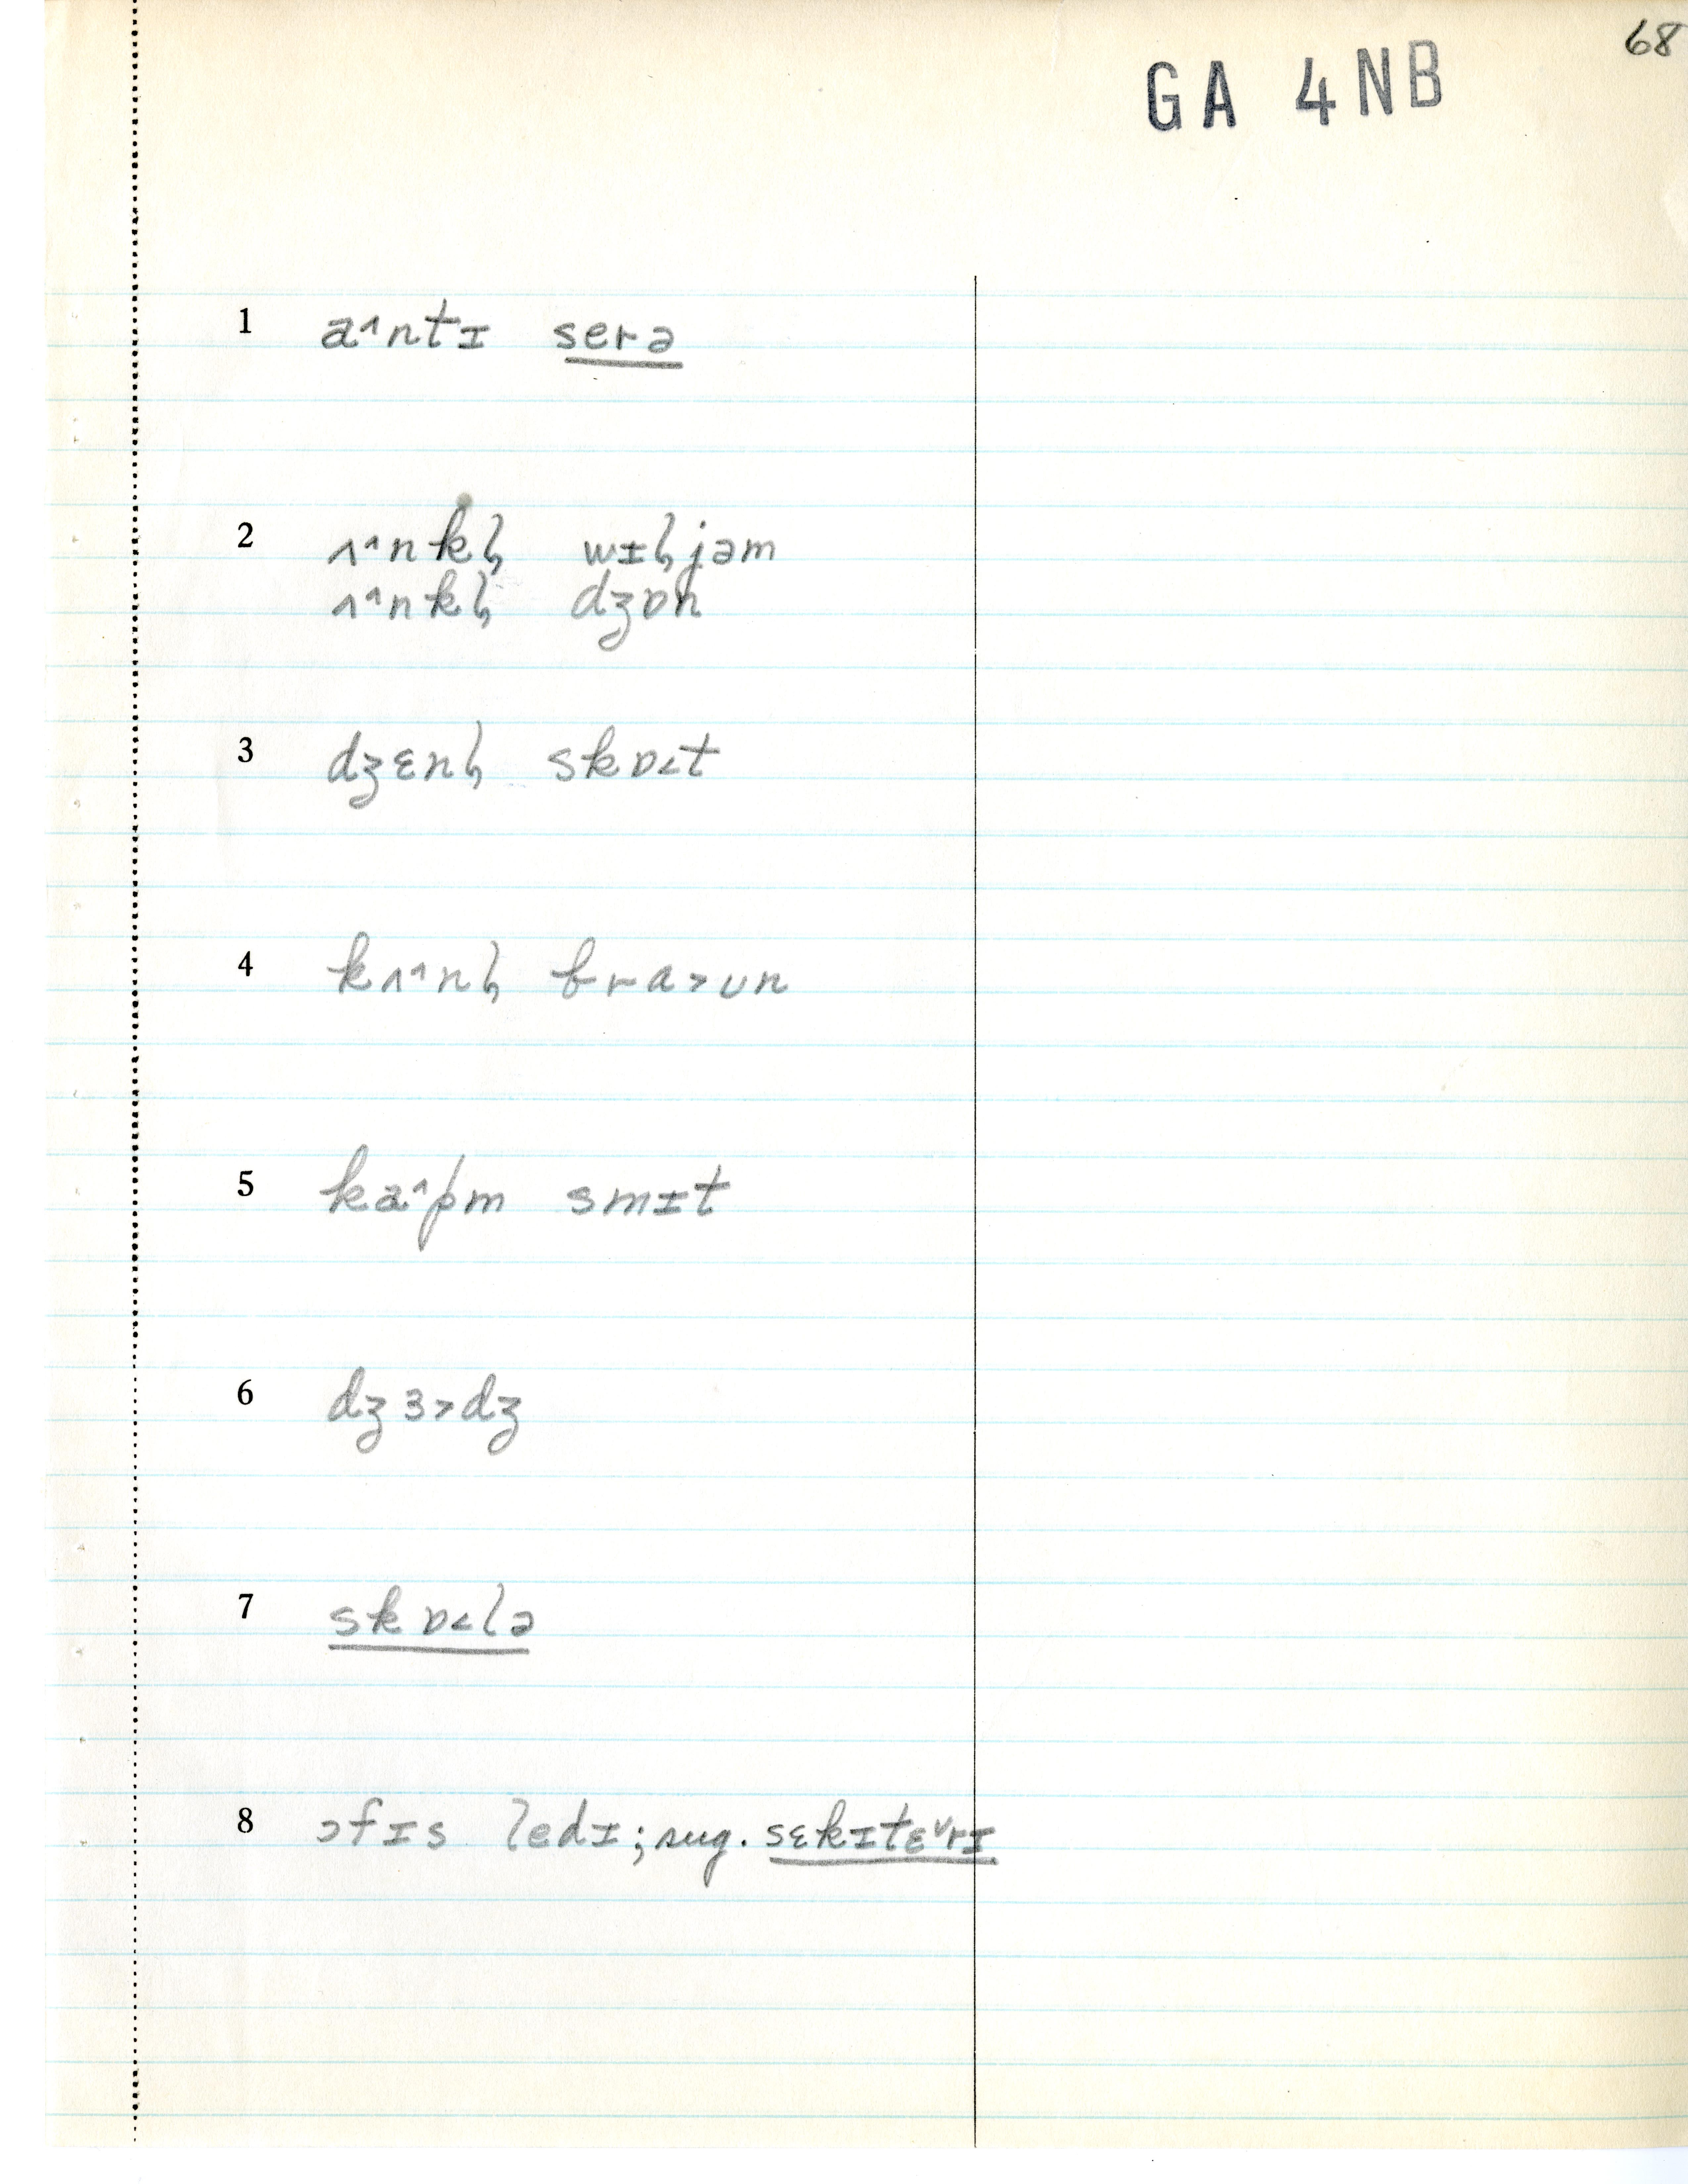 68
GA 4NB
1 a˄ntɪ serə
2 ʌ˄nkɫ wɪɫjəm
ʌ˄nkɫ dʒɒn
3 dʒɛnɫ skɒ˂t
4 kʌ˄nɫ brɑ˃ʊn
5 ka˄pm smɪt
6 dʒɜ˃dʒ
7 skɒ˂lə
8 ɔfɪs ledɪ; sug. sɛkɪtɛ˅rɪ